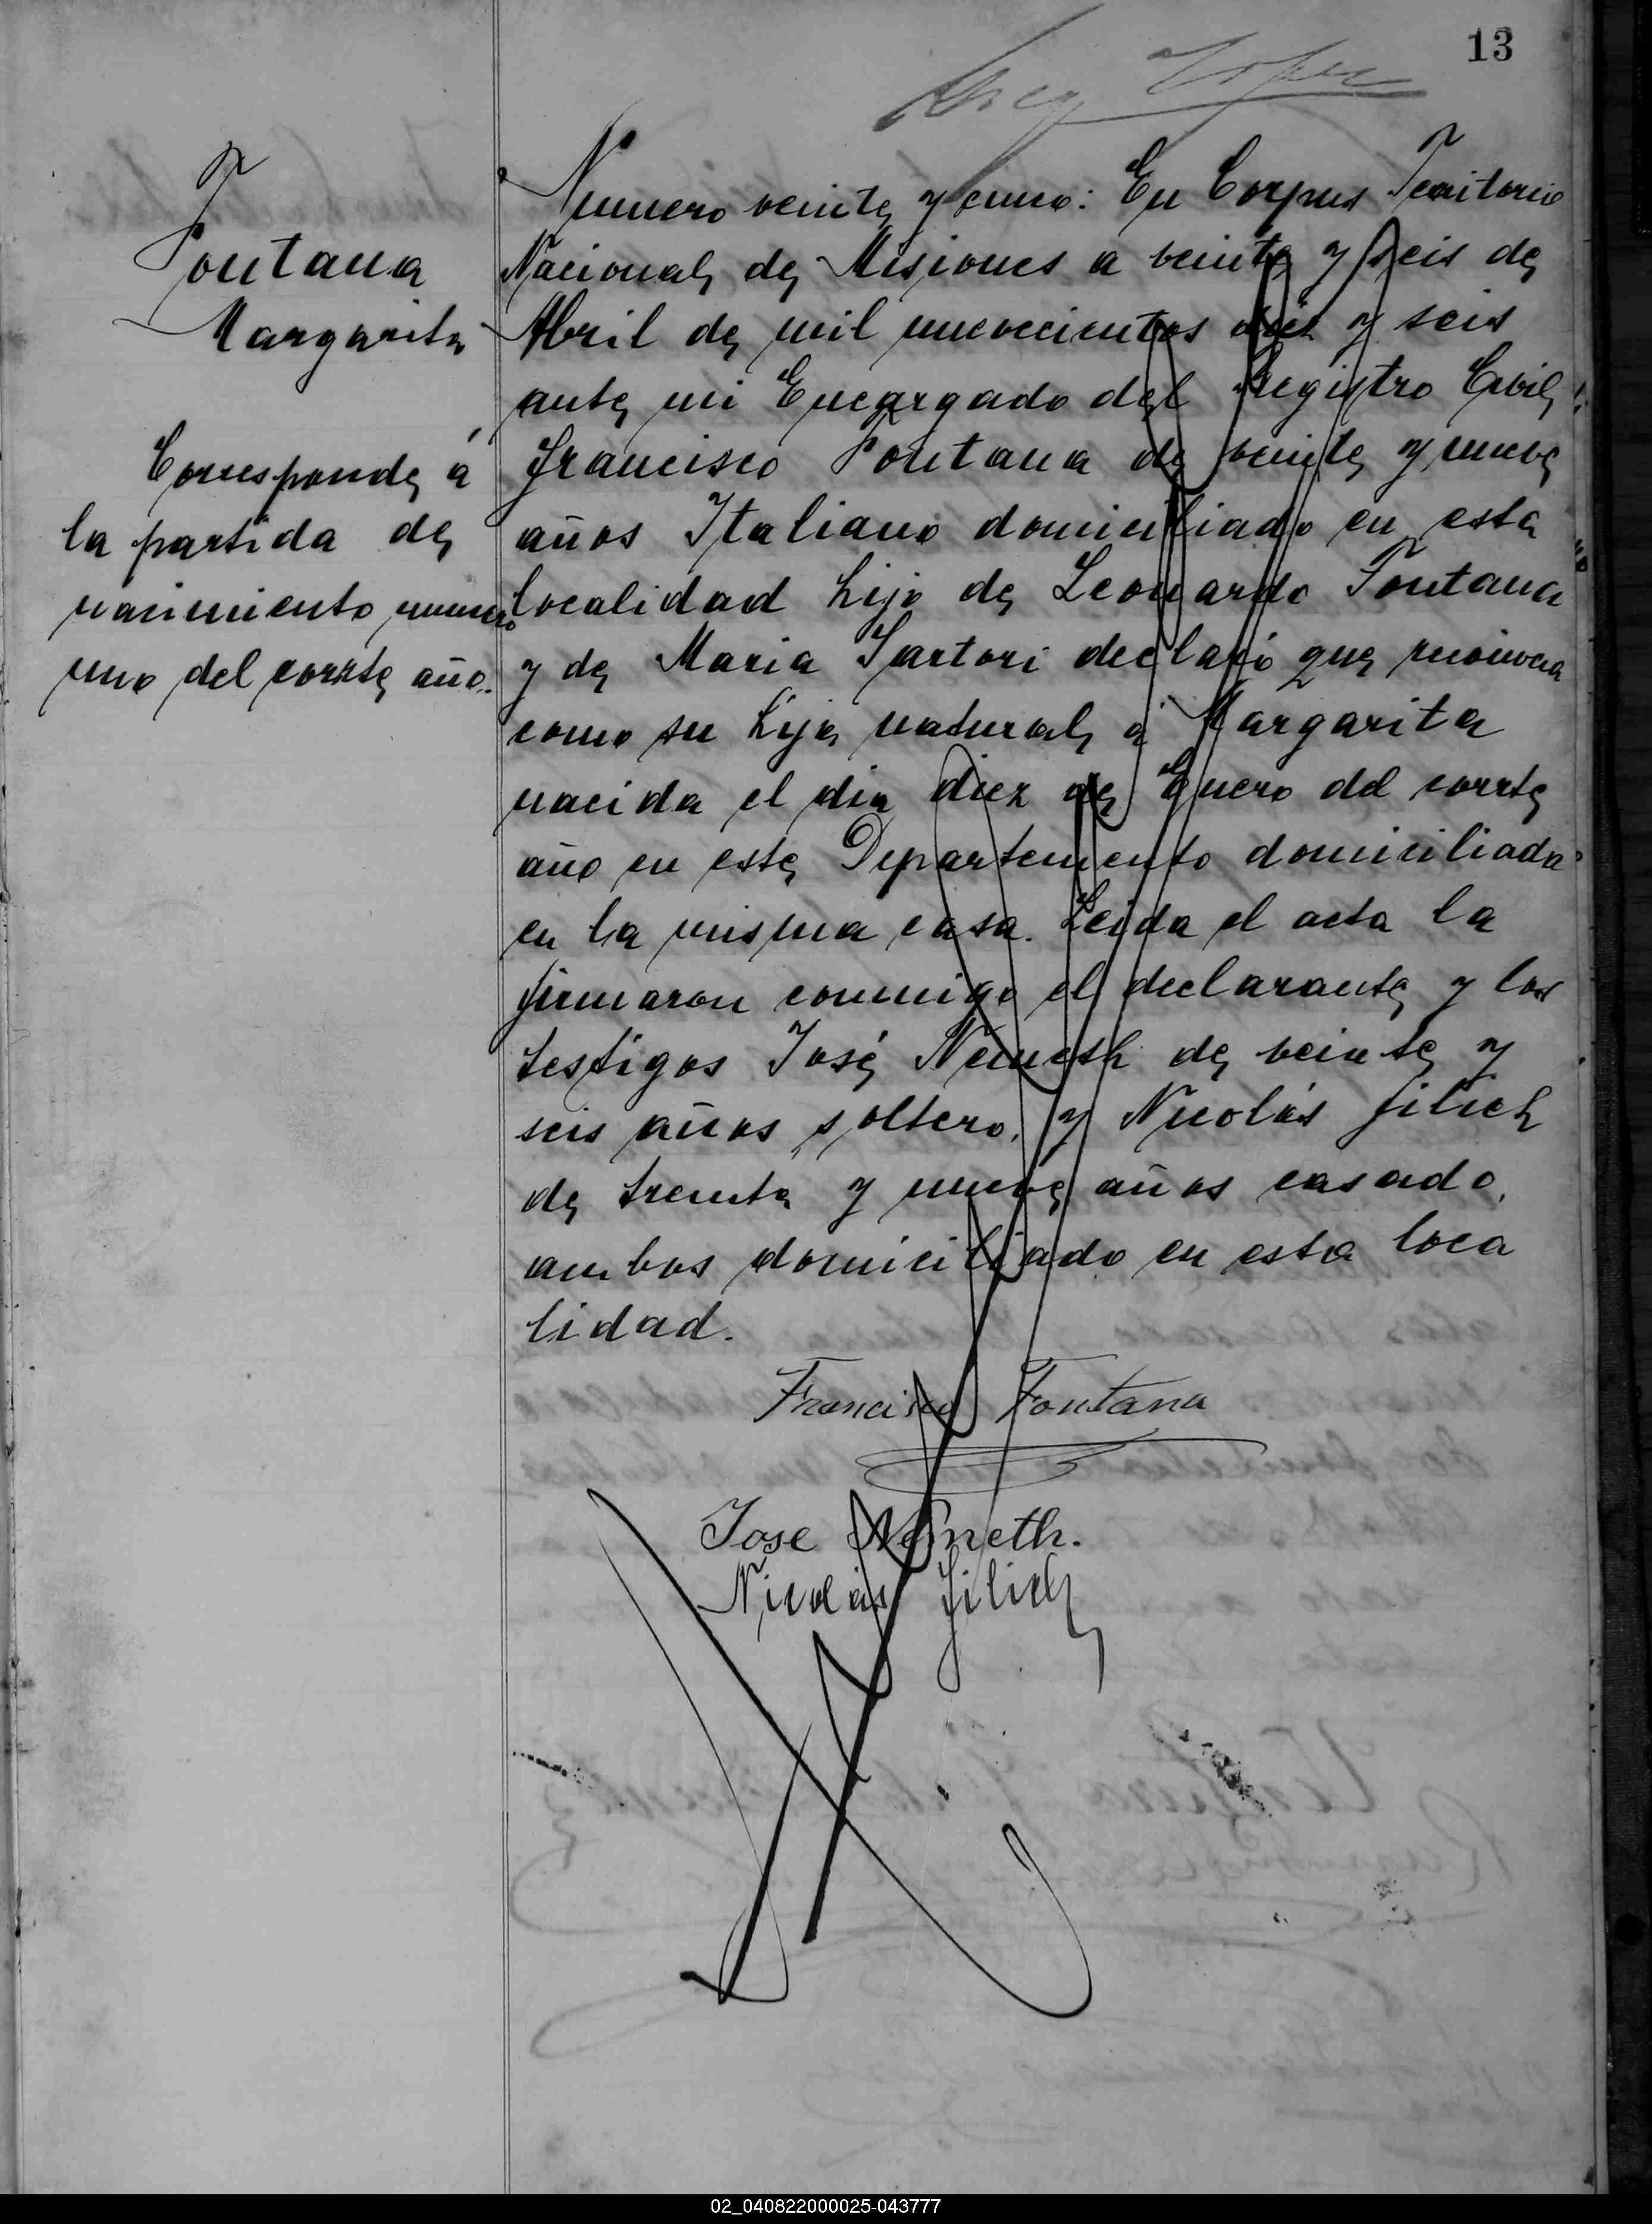 13
Fontana
Margarita
Corresponde á
la partida de
nacimiento numero
uno del corrte año.
Numero veinte y uno: En Corpus Territorio
Nacional de Misiones a veinte y seis de
Abril de mil nuevecientos diez y seis
ante mi Encargado del Registro Civil,
Francisco Fontana de veinte y nueve
años Italiano domiciliado en esta
localidad hijo de Leonardo Fontana
y de Maria Sartori declaró que reconocia
como su hija natural á Margarita
nacida el dia diez de Enero del corrte
año en este Departemento domiciliada
en la misma casa. Leida el acta la
firmaron conmigo el declarante y los
testigos José Németh de veinte y
seis años soltero, y Nicolás Jilich
de treinta y nueve años casado,
ambos domiciliado en esta loca
lidad.
Francisco Fontana
Jose Németh.
Nicolás Jilich
02_040822000025-043777